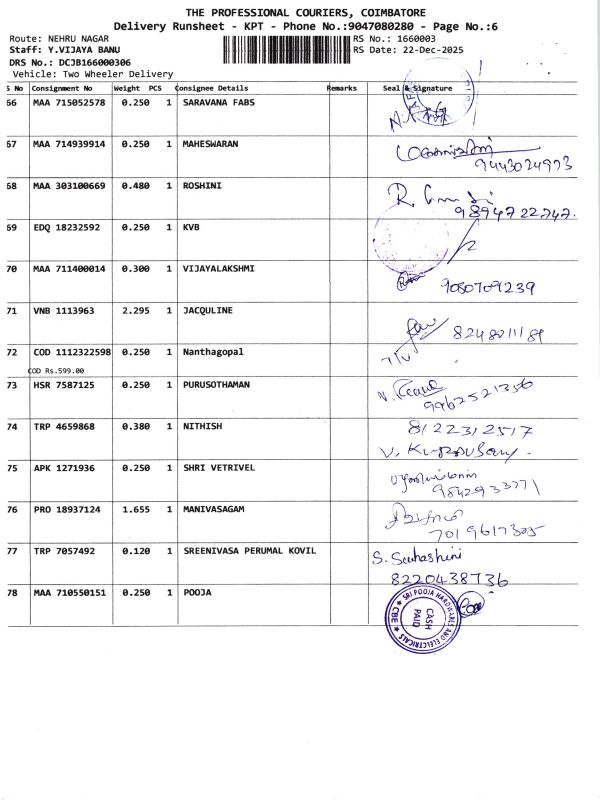 THE PROFESSIONAL COURIERS, COIMBATORE
Delivery Runsheet - KPT - Phone No.:9047080280 - Page No.:6
Route: NEHRU NAGAR
RS No.: 1660003
Staff: Y.VIJAYA BANU
RS Date: 22-Dec-2025
DRS No.: DCJB166000306
Vehicle: Two Wheeler Delivery
S No Consignment No Weight PCS Consignee Details Remarks Seal & Signature
66 MAA 715052578 0.250 1 SARAVANA FABS
67 MAA 714939914 0.250 1 MAHESWARAN
9443024973
68 MAA 303100669 0.480 1 ROSHINI
9894722747.
69 EDQ 18232592 0.250 1 KVB
70 MAA 711400014 0.300 1 VIJAYALAKSHMI
9080709239
71 VNB 1113963 2.295 1 JACQULINE
8248011189
72 COD 1112322598 0.250 1 Nanthagopal
COD Rs.599.00
73 HSR 7587125 0.250 1 PURUSOTHAMAN
9962521356
74 TRP 4659868 0.380 1 NITHISH
8122312517
75 APK 1271936 0.250 1 SHRI VETRIVEL
9842933771
76 PRO 18937124 1.655 1 MANIVASAGAM
7019617305
77 TRP 7057492 0.120 1 SREENIVASA PERUMAL KOVIL
S. Subashini
8220438736
78 MAA 710550151 0.250 1 POOJA
SRI POOJA HARDWARES AND ELECTRICALS
CASH
PAID
★ CBE ★